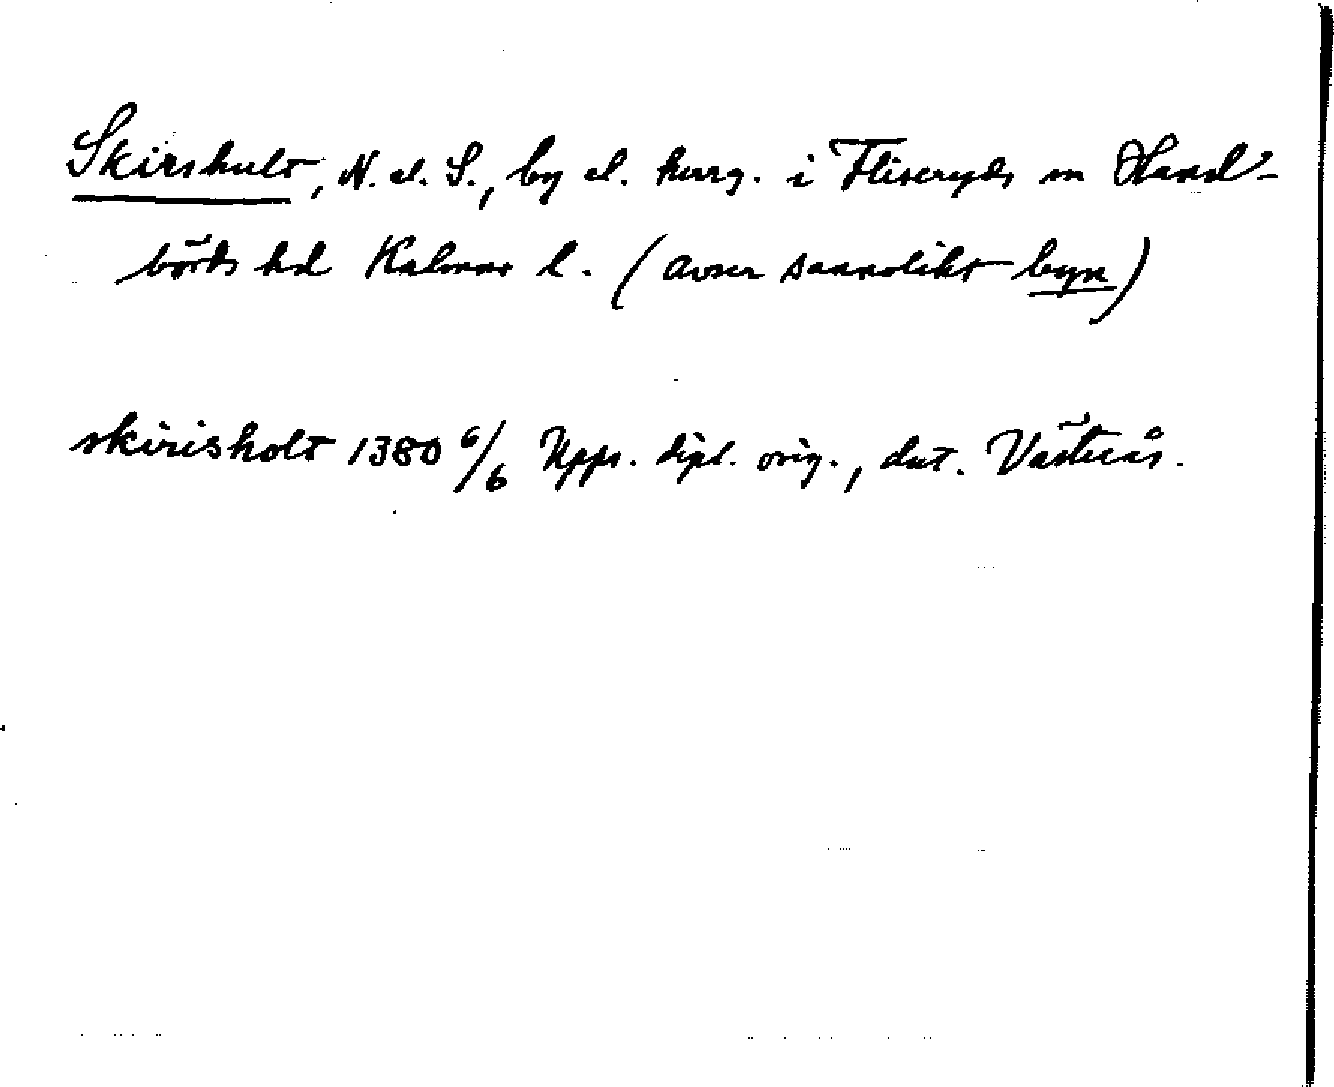 Skirshult, N. el. S., by el. herrg. i Fliseryds sn Hand-
börds hd Kalmar l. (avser sannolikt byn)
skirisholt 1380 6/6 Upps. dipl. orig., dat. Västerås.